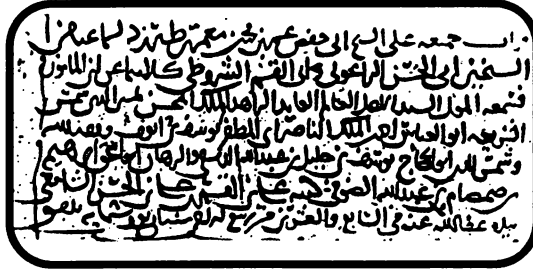 جميعه على الشيخ أبي حفص عمر بن محمد بن معمر بن طبرزد بسماعه من
الشيخين أبي الحسن الزاغوني وأبي القسم الشروطي كلاهما عن ابن المأمون
فسمعه المولى السيد الأجل العالم العابد الزاهد الملك المحسن يمين الدين شمس
الشريعة أبو العباس أحمد بن الملك الناصر أبي المظفر يوسف بن أيوب وفقه الله
وشمس الدين أبو الحجاج يوسف بن خليل بن عبد الله والبرهان أبو اسحق ابرهيم
بن صمصام بن عبد الله الصوفي كتبه علي بن القسم بن علي بن الحسن الشافعي
بيده عفا الله عنه في السابع والعشرين من ربيع